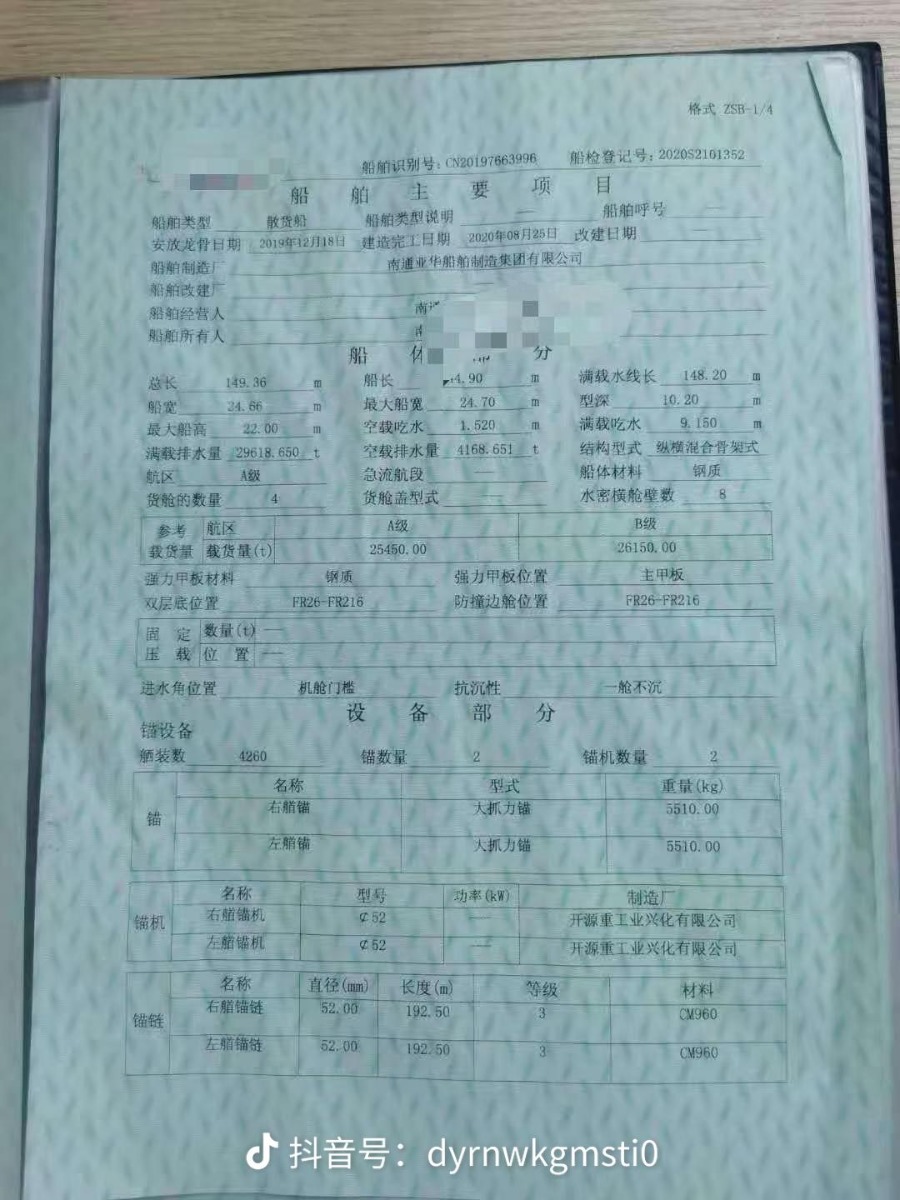 格式 ZSB-1/4
船舶识别号:CN20197663996 船检登记号:2020S2101352
船舶主要项目
船舶类型 散货船 船舶类型说明 — 船舶呼号 —
安放龙骨日期 2019年12月18日 建造完工日期 2020年08月25日 改建日期 —
船舶制造厂 南通亚华船舶制造集团有限公司
船舶改建厂
船舶经营人 南
船舶所有人 南
船体部分
总长 149.36 m 船长 4.90 m 满载水线长 148.20 m
船宽 24.66 m 最大船宽 24.70 m 型深 10.20 m
最大船高 22.00 m 空载吃水 1.520 m 满载吃水 9.150 m
满载排水量 29618.650 t 空载排水量 4168.651 t 结构型式 纵横混合骨架式
航区 A级 急流航段 — 船体材料 钢质
货舱的数量 4 货舱盖型式 — 水密横舱壁数 8
参考 航区 A级 B级
载货量 载货量(t) 25450.00 26150.00
强力甲板材料 钢质 强力甲板位置 主甲板
双层底位置 FR26-FR216 防撞边舱位置 FR26-FR216
固定 数量(t) —
压载 位置 —
进水角位置 机舱门槛 抗沉性 一舱不沉
设备部分
锚设备
舾装数 4260 锚数量 2 锚机数量 2
名称 型式 重量(kg)
锚 右艏锚 大抓力锚 5510.00
左艏锚 大抓力锚 5510.00
名称 型号 功率(kW) 制造厂
锚机 右艏锚机 ¢52 — 开源重工业兴化有限公司
左艏锚机 ¢52 — 开源重工业兴化有限公司
名称 直径(mm) 长度(m) 等级 材料
锚链 右艏锚链 52.00 192.50 3 CM960
左艏锚链 52.00 192.50 3 CM960
抖音号：dyrnwkgmsti0